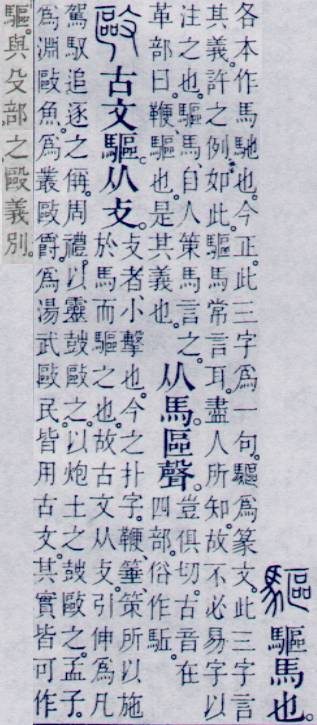 驅 驅馬也。
各本作馬馳也。今正。此三字爲一句。驅爲篆文。此三字言
其義。許之例如此。驅馬常言耳。盡人所知。故不必易字以
注之也。驅馬、自人策馬言之。
革部曰。鞭、驅也。是其義也。
从馬。區聲。
豈俱切。古音在
四部。俗作駈。
敺 古文驅。从攴。
攴者、小擊也。今之扑字。鞭、箠、策、所以施
於馬而驅之也。故古文从攴。引伸爲凡
駕馭追逐之偁。周禮。以靈鼓敺之。以炮土之鼓敺之。孟子。
爲淵敺魚。爲叢敺爵。爲湯武敺民。皆用古文。其實皆可作
驅。與殳部之毆義別。